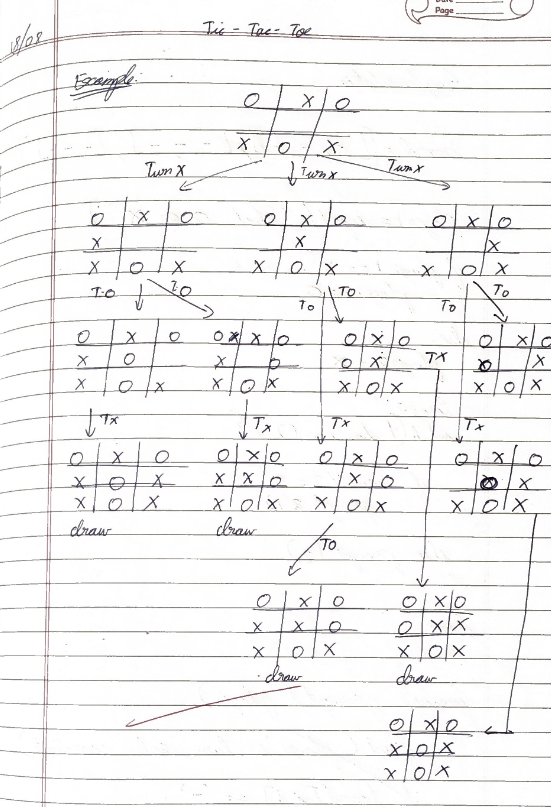 Page
18/08
Tic - Tac - Toe
Example:
O X O
X O X
Turn X Turn X Turn X
O X O O X O O X O
X X X
X O X X O X X O X
T.O T.O TO TO TO TO
O X O O X X O O X O O X O
X O X O O X O X
X O X X O X X O X X O X
TX
Tx Tx Tx Tx
O X O O X O O X O O X O
X O X X X O X O O X
X O X X O X X O X X O X
draw draw
TO
O X O O X O
X X O O X X
X O X X O X
draw draw
O X O
X O X
X O X